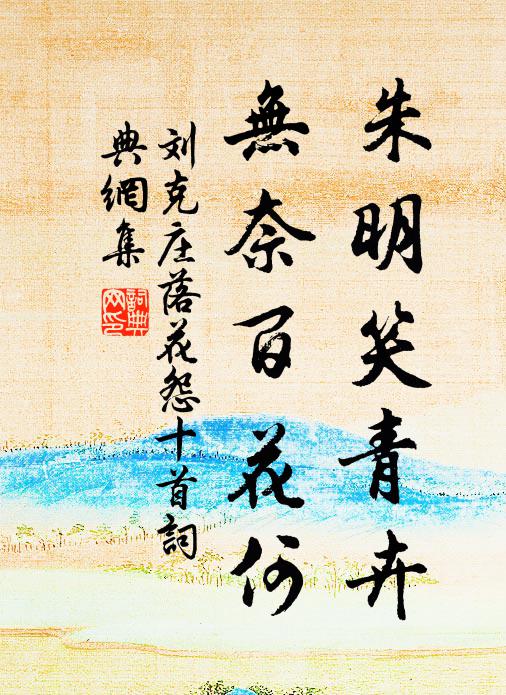 朱明笑青卉
無奈百花何
刘克庄落花怨十首詞
典網集
詞典
网印